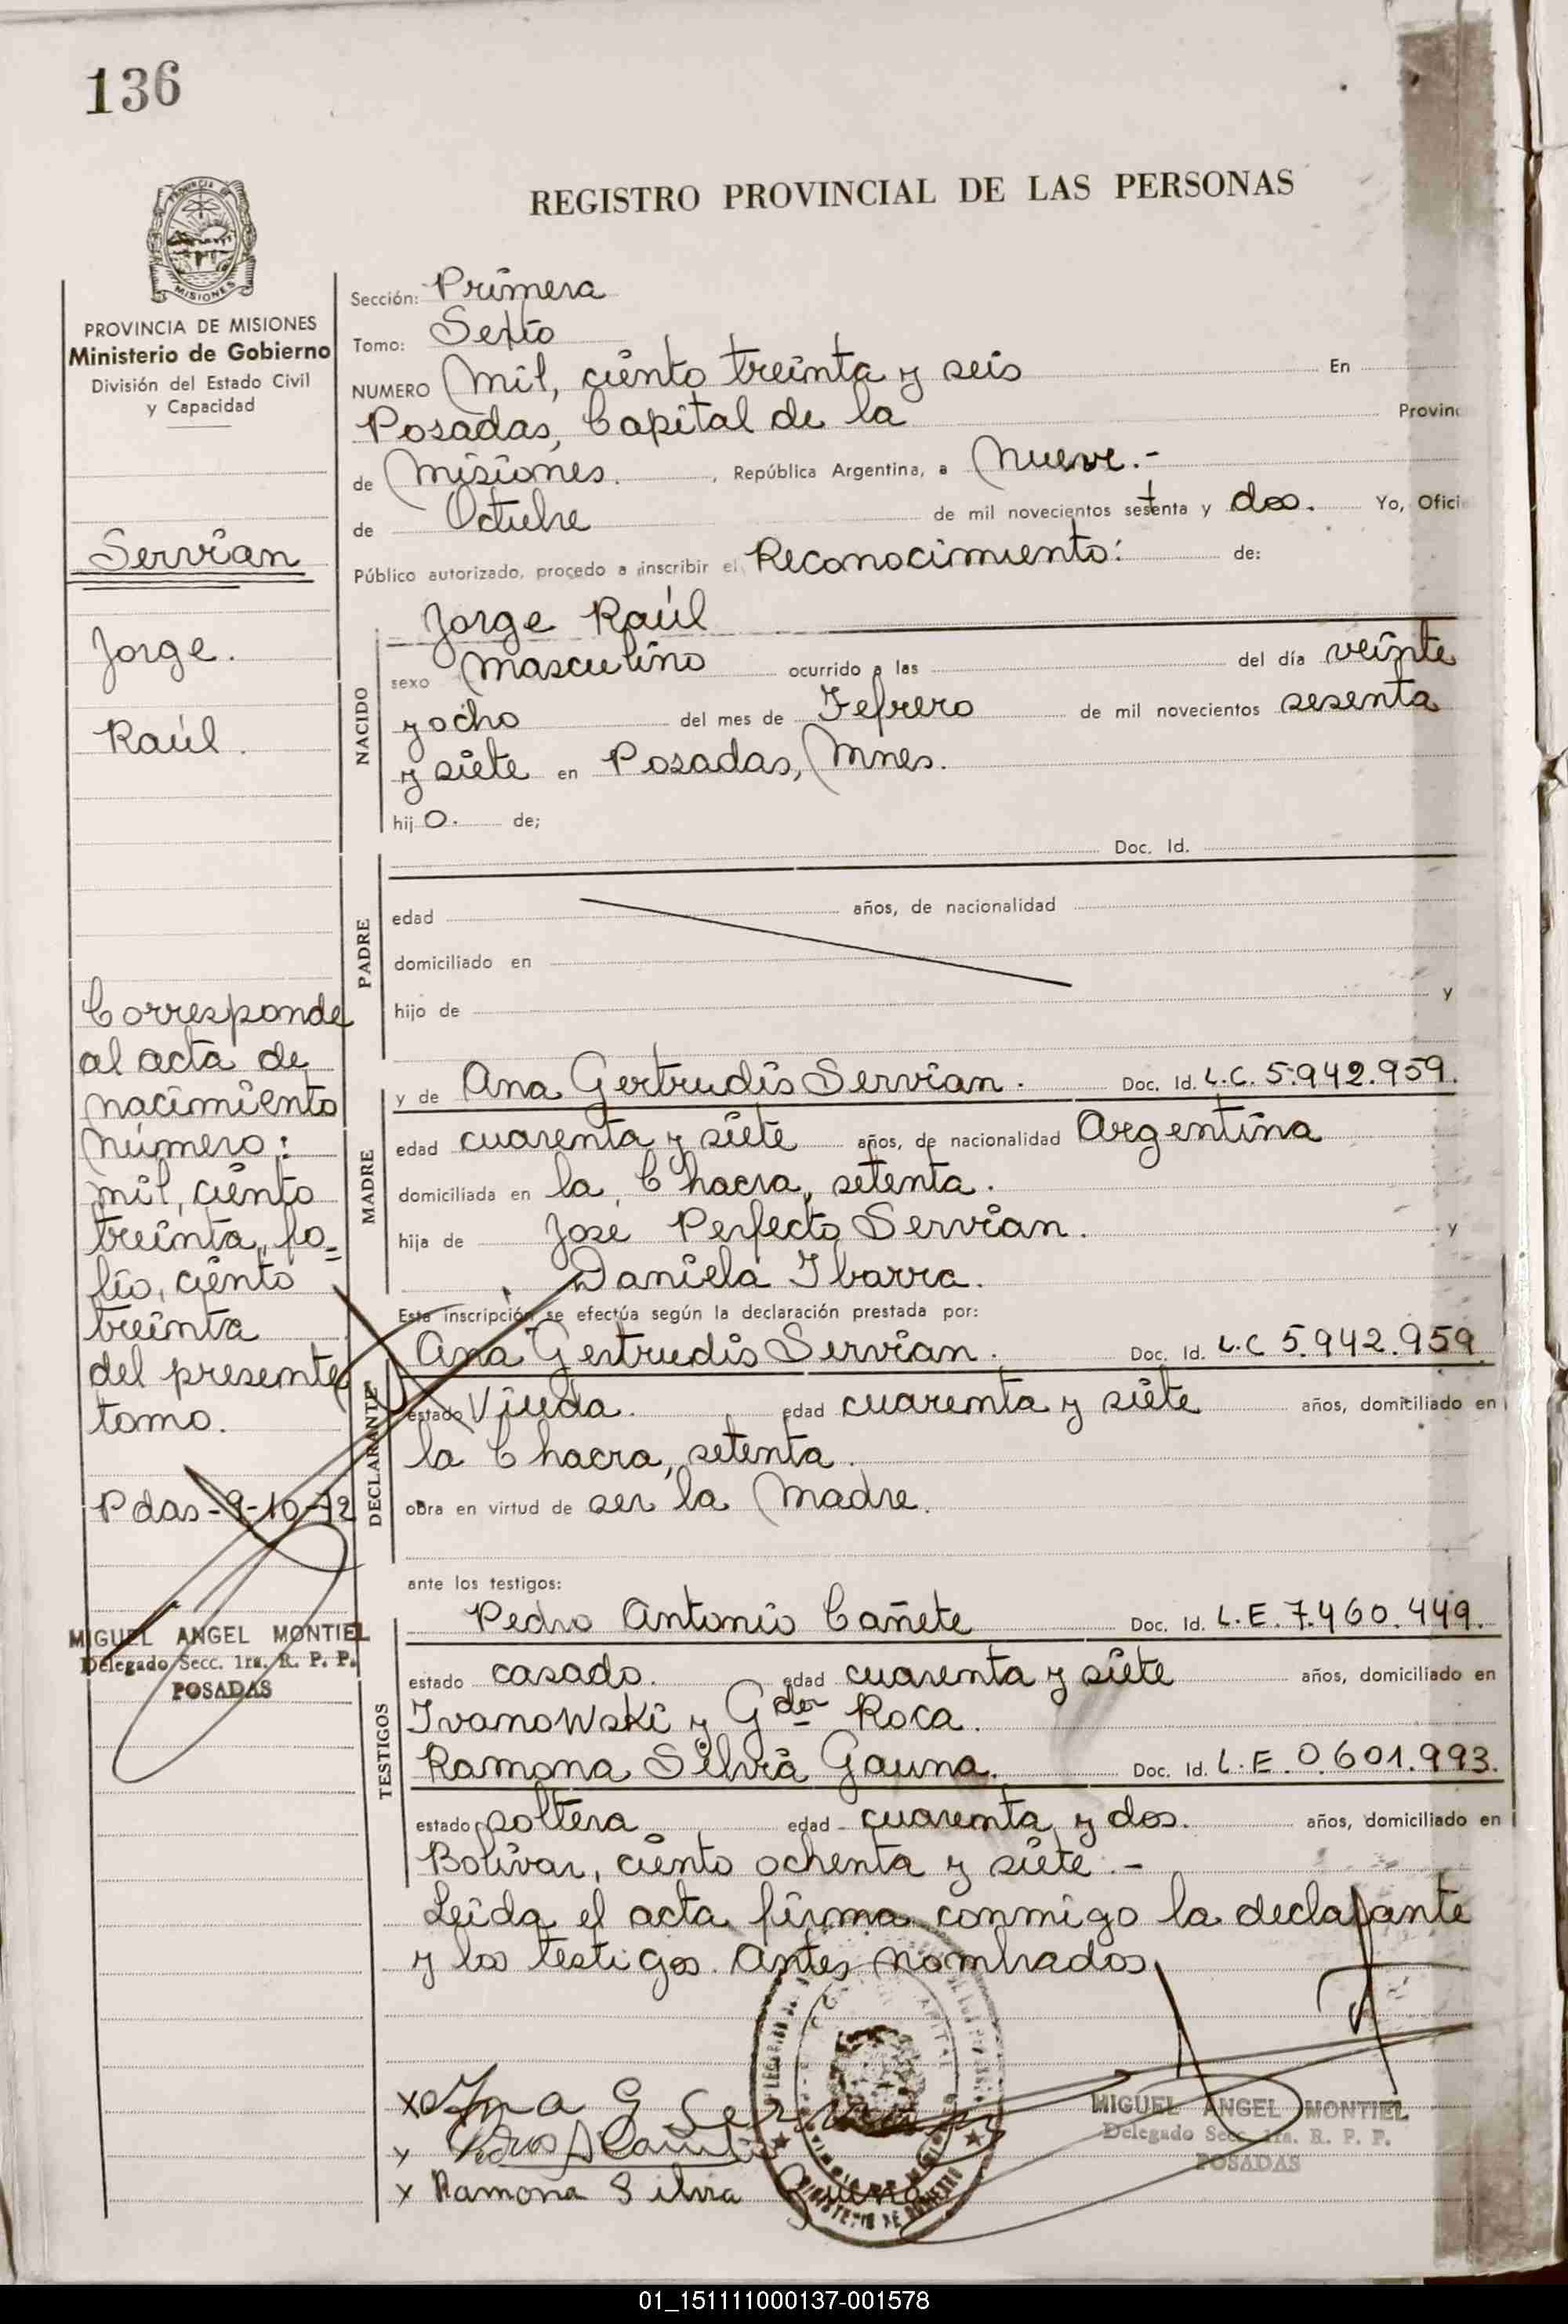 136
REGISTRO PROVINCIAL DE LAS PERSONAS
PROVINCIA DE
MISIONES
PROVINCIA DE MISIONES
Ministerio de Gobierno
División del Estado Civil
y Capacidad
Servian
Jorge.
Raúl.
Corresponde
al acta de
nacimiento
número:
mil, ciento
treinta, fo=
lio, ciento
treinta
del presente
tomo.
Pdas-9-10-72
MIGUEL ANGEL MONTIEL
Delegado Secc. 1ra. R. P. P.
POSADAS
Sección: Primera
Tomo: Sexto
NUMERO Mil, ciento treinta y seis En
Posadas, Capital de la Provinc
de Misiones. , República Argentina, a Nueve.-
de Octubre de mil novecientos setenta y dos. Yo, Ofici
Público autorizado, procedo a inscribir el Reconocimiento: de:
NACIDO
Jorge Raúl
sexo Masculino ocurrido a las del día veinte
y ocho del mes de Febrero de mil novecientos sesenta
y siete en Posadas, Mnes.
hij o. de;
PADRE
Doc. Id.
edad años, de nacionalidad
domiciliado en
hijo de y
MADRE
y de Ana Gertrudis Servian. Doc. Id. L.C. 5.942.959.
edad cuarenta y siete años, de nacionalidad Argentina
domiciliada en la Chacra, setenta.
hija de José Perfecto Servian. y
Daniela Ibarra.
Esta inscripción se efectúa según la declaración prestada por:
DECLARANTE
Ana Gertrudis Servian. Doc. Id. L.C 5.942.959
estado Viuda. edad cuarenta y siete años, domiciliado en
la Chacra, setenta.
obra en virtud de ser la Madre.
ante los testigos:
TESTIGOS
Pedro Antonio Cañete Doc. Id. L.E. 7.460.449.
estado casado. edad cuarenta y siete años, domiciliado en
IvanoWski y Gdor Roca.
Ramona Silvia Gauna. Doc. Id. L.E. 0.601.993.
estado soltera edad cuarenta y dos. años, domiciliado en
Bolivar, ciento ochenta y siete.-
Leida el acta firma conmigo la declarante
y los testigos. Antes nombrados
x Ana G Servian
x
x Ramona Silvia
MINISTERIO DE GOBIERNO
MIGUEL ANGEL MONTIEL
Delegado Secc. 1ra. R. P. P.
POSADAS
01_151111000137-001578